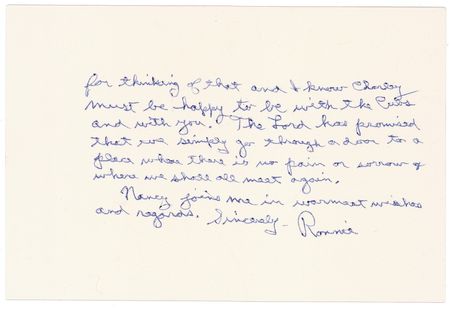 for thinking of that and I know Charley
must be happy to be with the Cubs
and with you. The Lord has promised
that we simply go through a door to a
place where there is no pain or sorrow &
where we shall all meet again.
Nancy joins me in warmest wishes
and regards. Sincerely - Ronnie